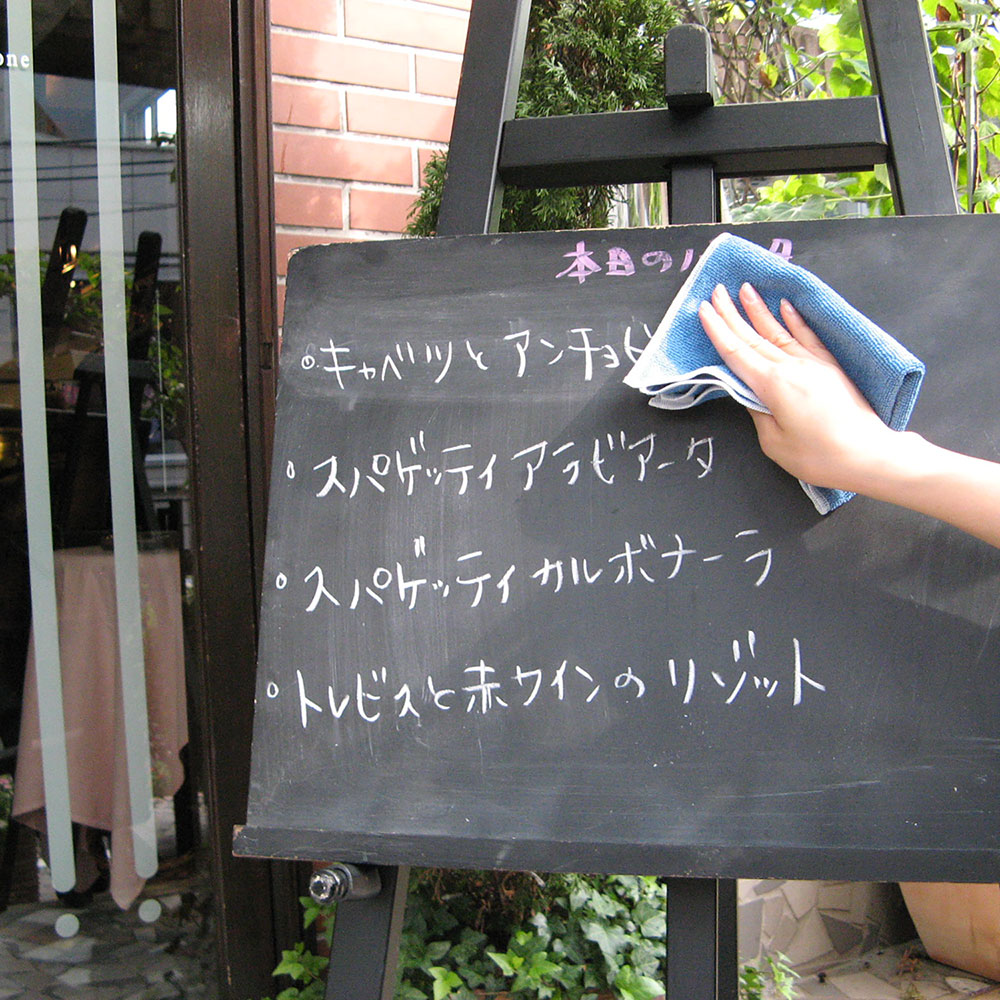 one
本日の
・キャベツとアンチョビ
・スパゲッティアラビアータ
・スパゲッティカルボナーラ
・トレビスと赤ワインのリゾット